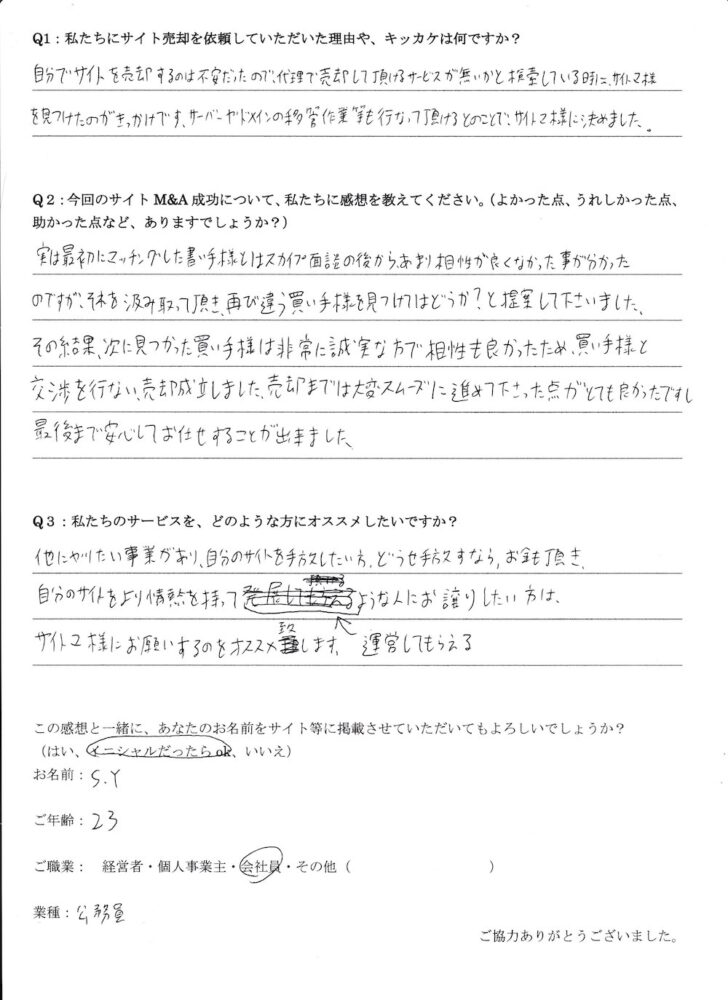 Q1：私たちにサイト売却を依頼していただいた理由や、キッカケは何ですか？
自分でサイトを売却するのは不安だったので、代理で売却して頂けるサービスが無いかと模索している時に、サイトマ様
を見つけたのがきっかけです。サーバーやドメインの移管作業等も行なって頂けるとのことで、サイトマ様に決めました。
Q２：今回のサイト M&A 成功について、私たちに感想を教えてください。（よかった点、うれしかった点、
助かった点など、ありますでしょうか？）
実は最初にマッチングした買い手様とはスカイプ面談の後からあまり相性が良くなかった事が分かった
のですが、それを汲み取って頂き、再び違う買い手様を見つけてはどうか？と提案して下さいました。
その結果、次に見つかった買い手様は非常に誠実な方で相性も良かったため、買い手様と
交渉を行ない、売却成立しました。売却までは大変スムーズに進めて下さった点がとても良かったですし
最後まで安心してお任せすることが出来ました。
Q３：私たちのサービスを、どのような方にオススメしたいですか？
他にやりたい事業があり、自分のサイトを手放したい方。どうせ手放すなら、お金も頂き、
自分のサイトをより情熱を持って発展してもらえるような人にお譲りしたい方は、
サイトマ様にお願いするのをオススメ致します。 運営してもらえる
この感想と一緒に、あなたのお名前をサイト等に掲載させていただいてもよろしいでしょうか？
（はい、イニシャルだったら ok、いいえ）
お名前：S.Y
ご年齢：23
ご職業： 経営者・個人事業主・会社員・その他（ ）
業種：公務員
ご協力ありがとうございました。